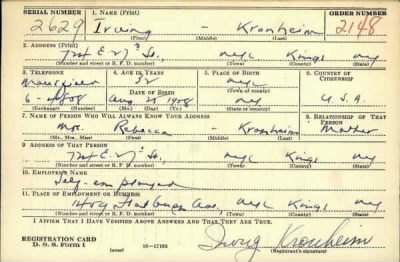 SERIAL NUMBER 1. NAME (Print) ORDER NUMBER
2629 Irving - Kronheim 2148
(First) (Middle) (Last)
2. ADDRESS (Print)
E. St., nyc Kings ny
(Number and street or R. F. D. number) (Town) (County) (State)
3. TELEPHONE 4. AGE IN YEARS 5. PLACE OF BIRTH 6. COUNTRY OF CITIZENSHIP
Mansfield 32 nyc
DATE OF BIRTH (Town or county)
6- Aug 1908 ny U.S.A.
(Exchange) (No.) (Mo.) (Day) (Yr.) (State or country)
7. NAME OF PERSON WHO WILL ALWAYS KNOW YOUR ADDRESS 8. RELATIONSHIP OF THAT PERSON
Mrs. Rebecca - Kronheim Mother
(Mr., Mrs., Miss) (First) (Middle) (Last)
9. ADDRESS OF THAT PERSON
E. St. nyc Kings ny
(Number and street or R. F. D. number) (Town) (County) (State)
10. EMPLOYER'S NAME
Self-employed
11. PLACE OF EMPLOYMENT OR BUSINESS
Flatbush Ave, nyc Kings ny
(Number and street or R. F. D. number) (Town) (County) (State)
I AFFIRM THAT I HAVE VERIFIED ABOVE ANSWERS AND THAT THEY ARE TRUE.
REGISTRATION CARD
D. S. S. FORM 1 (over) 16-17105 Irving Kronheim
(Registrant's signature)